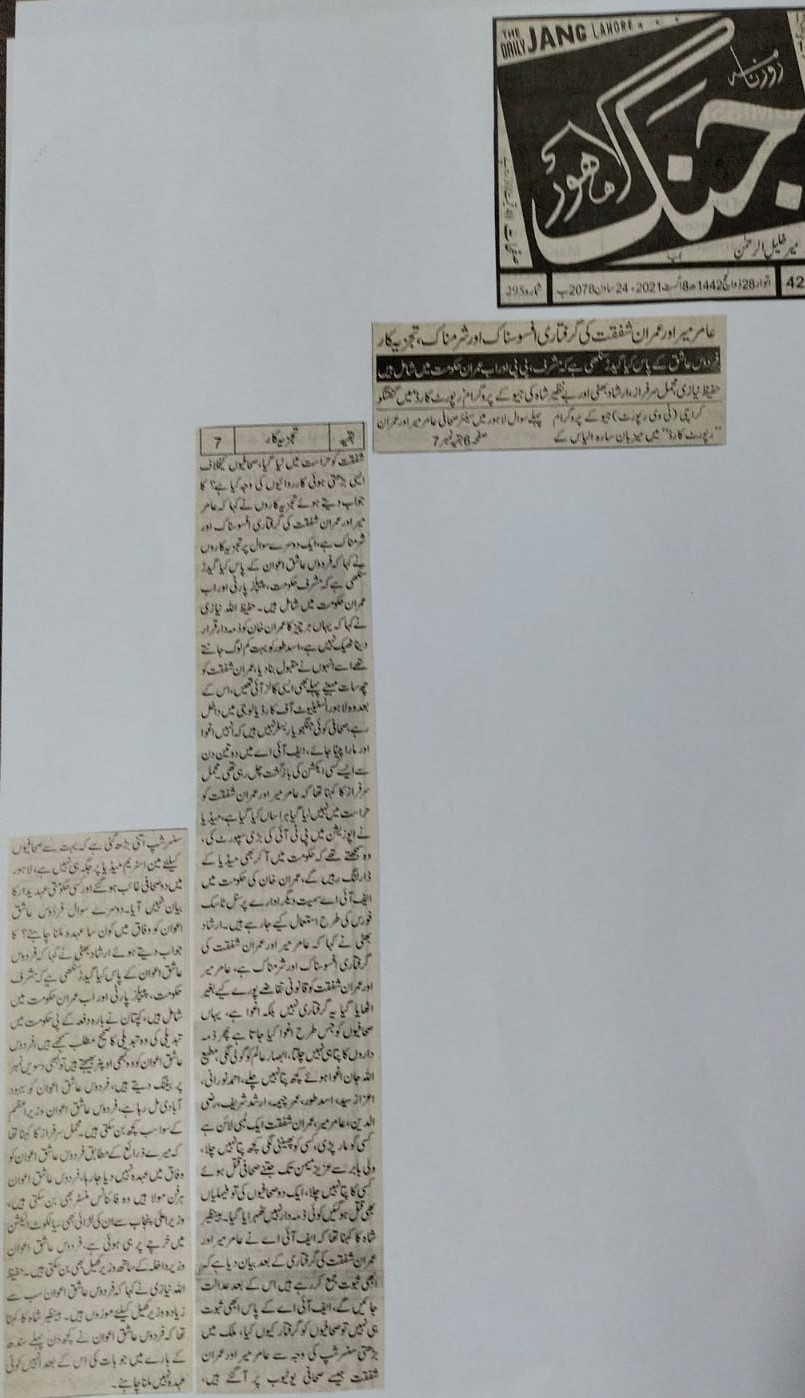 THE DAILY JANG LAHORE
روزنامہ
جنگ
لاہور
میر خلیل الرحمٰن
42 اتوار 28 ذوالحج 1442ھ 8 اگست 2021ء 24 ساون 2078 ب شمارہ 295
عامر میر اور عمران شفقت کی گرفتاری افسوسناک اور شرمناک، تجزیہ کار
فردوس عاشق کے پاس کیا گیدڑ سنگھی ہے کہ مشرف، پی پی اور اب عمران حکومت میں شامل ہیں
حفیظ نیازی، مجمل سرفراز، ارشاد بھٹی اور بے نظیر شاہ کی جیو کے پروگرام ’رپورٹ کارڈ‘ میں گفتگو
کراچی (ٹی وی رپورٹ) جیو کے پروگرام
”رپورٹ کارڈ“ میں میزبان سارہ الیاس کے
پہلے سوال لاہور میں سینئر صحافی عامر میر اور عمران
صفحہ 6 بقیہ نمبر 7
بقیہ تجزیہ کار 7
شفقت کو حراست میں لیا گیا، صحافیوں کیخلاف
ایسی بڑھتی ہوئی کارروائیوں کی وجہ کیا ہے؟ کا
جواب دیتے ہوئے تجزیہ کاروں نے کہا کہ عامر
میر اور عمران شفقت کی گرفتاری افسوسناک اور
شرمناک ہے، ایک دوسرے سوال پر تجزیہ کاروں
نے کہا کہ فردوس عاشق اعوان کے پاس کیا گیدڑ
سنگھی ہے کہ مشرف حکومت، پیپلز پارٹی اور اب
عمران حکومت میں شامل ہیں۔ حفیظ اللہ نیازی
نے کہا کہ یہاں ہر چیز کا عمران خان کو ذمہ دار قرار
دینا ٹھیک نہیں ہے، اسد طور کو بہت کم لوگ جانتے
تھے اسے انہوں نے مقبول بنادیا، عمران شفقت کو
چھ سات مہینے پہلے بھی ایسی کالز آئی تھیں، اس کے
بعد وہ لاہور انسٹیٹیوٹ آف کارڈیالوجی میں داخل
رہے، صحافی کوئی جنگجو یا ریسلر نہیں ہیں کہ انہیں اغوا
اور مارا پیٹا جائے، ایف آئی اے میں دو تین دن
سے ایسے کسی ایکشن کی بازگشت چل رہی تھی۔ مجمل
سرفراز کا کہنا تھا کہ عامر میر اور عمران شفقت کو
حراست میں نہیں لیا گیا ہراساں کیا گیا ہے، میڈیا
نے اپوزیشن میں پی ٹی آئی کی بڑی سپورٹ کی،
وہ سمجھتے تھے کہ حکومت میں آ کر بھی میڈیا کے
ڈارلنگ رہیں گے، عمران خان کی حکومت میں
ایف آئی اے سمیت دیگر ادارے پرسنل ٹاسک
فورس کی طرح استعمال کیے جارہے ہیں۔ ارشاد
بھٹی نے کہا کہ عامر میر اور عمران شفقت کی
گرفتاری افسوسناک اور شرمناک ہے، عامر میر
اور عمران شفقت کو قانونی تقاضے پورے کیے بغیر
اٹھایا گیا یہ گرفتاری نہیں بلکہ اغوا ہے، یہاں
صحافیوں کو جس طرح اغوا کیا جاتا ہے پھر ذمہ
داروں کا پتا ہی نہیں چلتا، ابصار عالم کو گولی لگی، مطیع
اللہ جان اغوا ہوئے کچھ پتا نہیں چلے، احمد نورانی،
اعزاز سید، اسد طور، عمر چیمہ، ارشد شریف، رضی
الدین، عامر میر، عمران شفقت ایک لمبی لائن ہے
کسی کو مار پڑی، کسی کو پھینٹی لگی کچھ پتا نہیں چلا،
ولی بابر سے عزیز میمن تک جتنے صحافی قتل ہوئے
کسی کا پتا نہیں چلا، ایک دو صحافیوں کی تو فیملیاں
بھی قتل ہوگئیں کوئی ذمہ دار نہیں ٹھہرایا گیا۔ بینظیر
شاہ کا کہنا تھا کہ ایف آئی اے نے عامر میر اور
عمران شفقت کی گرفتاری کے بعد بیان دیا ہے کہ
ابھی ثبوت جمع کررہے ہیں اس کے بعد عدالت
جائیں گے، ایف آئی اے کے پاس ابھی ثبوت
ہی نہیں تو صحافیوں کو گرفتار کیوں کیا، ملک میں
بڑھتی سنسر شپ کی وجہ سے عامر میر اور عمران
شفقت جیسے صحافی یوٹیوب پر آگئے ہیں،
سنسر شپ اتنی بڑھ گئی ہے کہ بہت سے صحافیوں
کیلئے مین اسٹریم میڈیا پر جگہ ہی نہیں ہے، لاہور
میں دو صحافی غائب ہوگئے اور کسی حکومتی عہدیدار کا
بیان نہیں آیا۔ دوسرے سوال فردوس عاشق
اعوان کو وفاق میں کون سا عہدہ ملنا چاہئے؟ کا
جواب دیتے ہوئے ارشاد بھٹی نے کہا کہ فردوس
عاشق اعوان کے پاس کیا گیدڑ سنگھی ہے کہ مشرف
حکومت، پیپلز پارٹی اور اب عمران حکومت میں
شامل ہیں، کپتان نے بارہ دفعہ کے پی حکومت میں
تبدیلی کی وہ تبدیلی کا صحیح مطلب سمجھے ہیں، فردوس
عاشق اعوان کو وہ کبھی اوپنر بھیجتے ہیں تو کبھی دسویں نمبر
پر بیٹنگ دیتے ہیں، فردوس عاشق اعوان کو بہبود
آبادی مل رہا ہے، فردوس عاشق اعوان وزیراعظم
کے سوا سب کچھ بن سکتی ہیں۔ مجمل سرفراز کا کہنا تھا
کہ میرے ذرائع کے مطابق فردوس عاشق اعوان کو
وفاق میں عہدہ نہیں دیا جارہا، فردوس عاشق اعوان
ہرفن مولا ہیں وہ فنانس منسٹر بھی بن سکتی ہیں،
وزیراعلیٰ پنجاب سے ان کی لڑائی بھی سیالکوٹ الیکشن
میں خرچے پر ہی ہوئی ہے، فردوس عاشق اعوان
وزیر داخلہ کے ساتھ وزیر کھیل بھی بن سکتی ہیں۔ حفیظ
اللہ نیازی نے کہا کہ فردوس عاشق اعوان سب سے
زیادہ وزیر کھیل کیلئے موزوں ہیں۔ بینظیر شاہ کا کہنا
تھا کہ فردوس عاشق اعوان نے کچھ دن پہلے سندھ
کے بارے میں جو بات کی اس کے بعد انہیں کوئی
عہدہ نہیں ملنا چاہئے۔